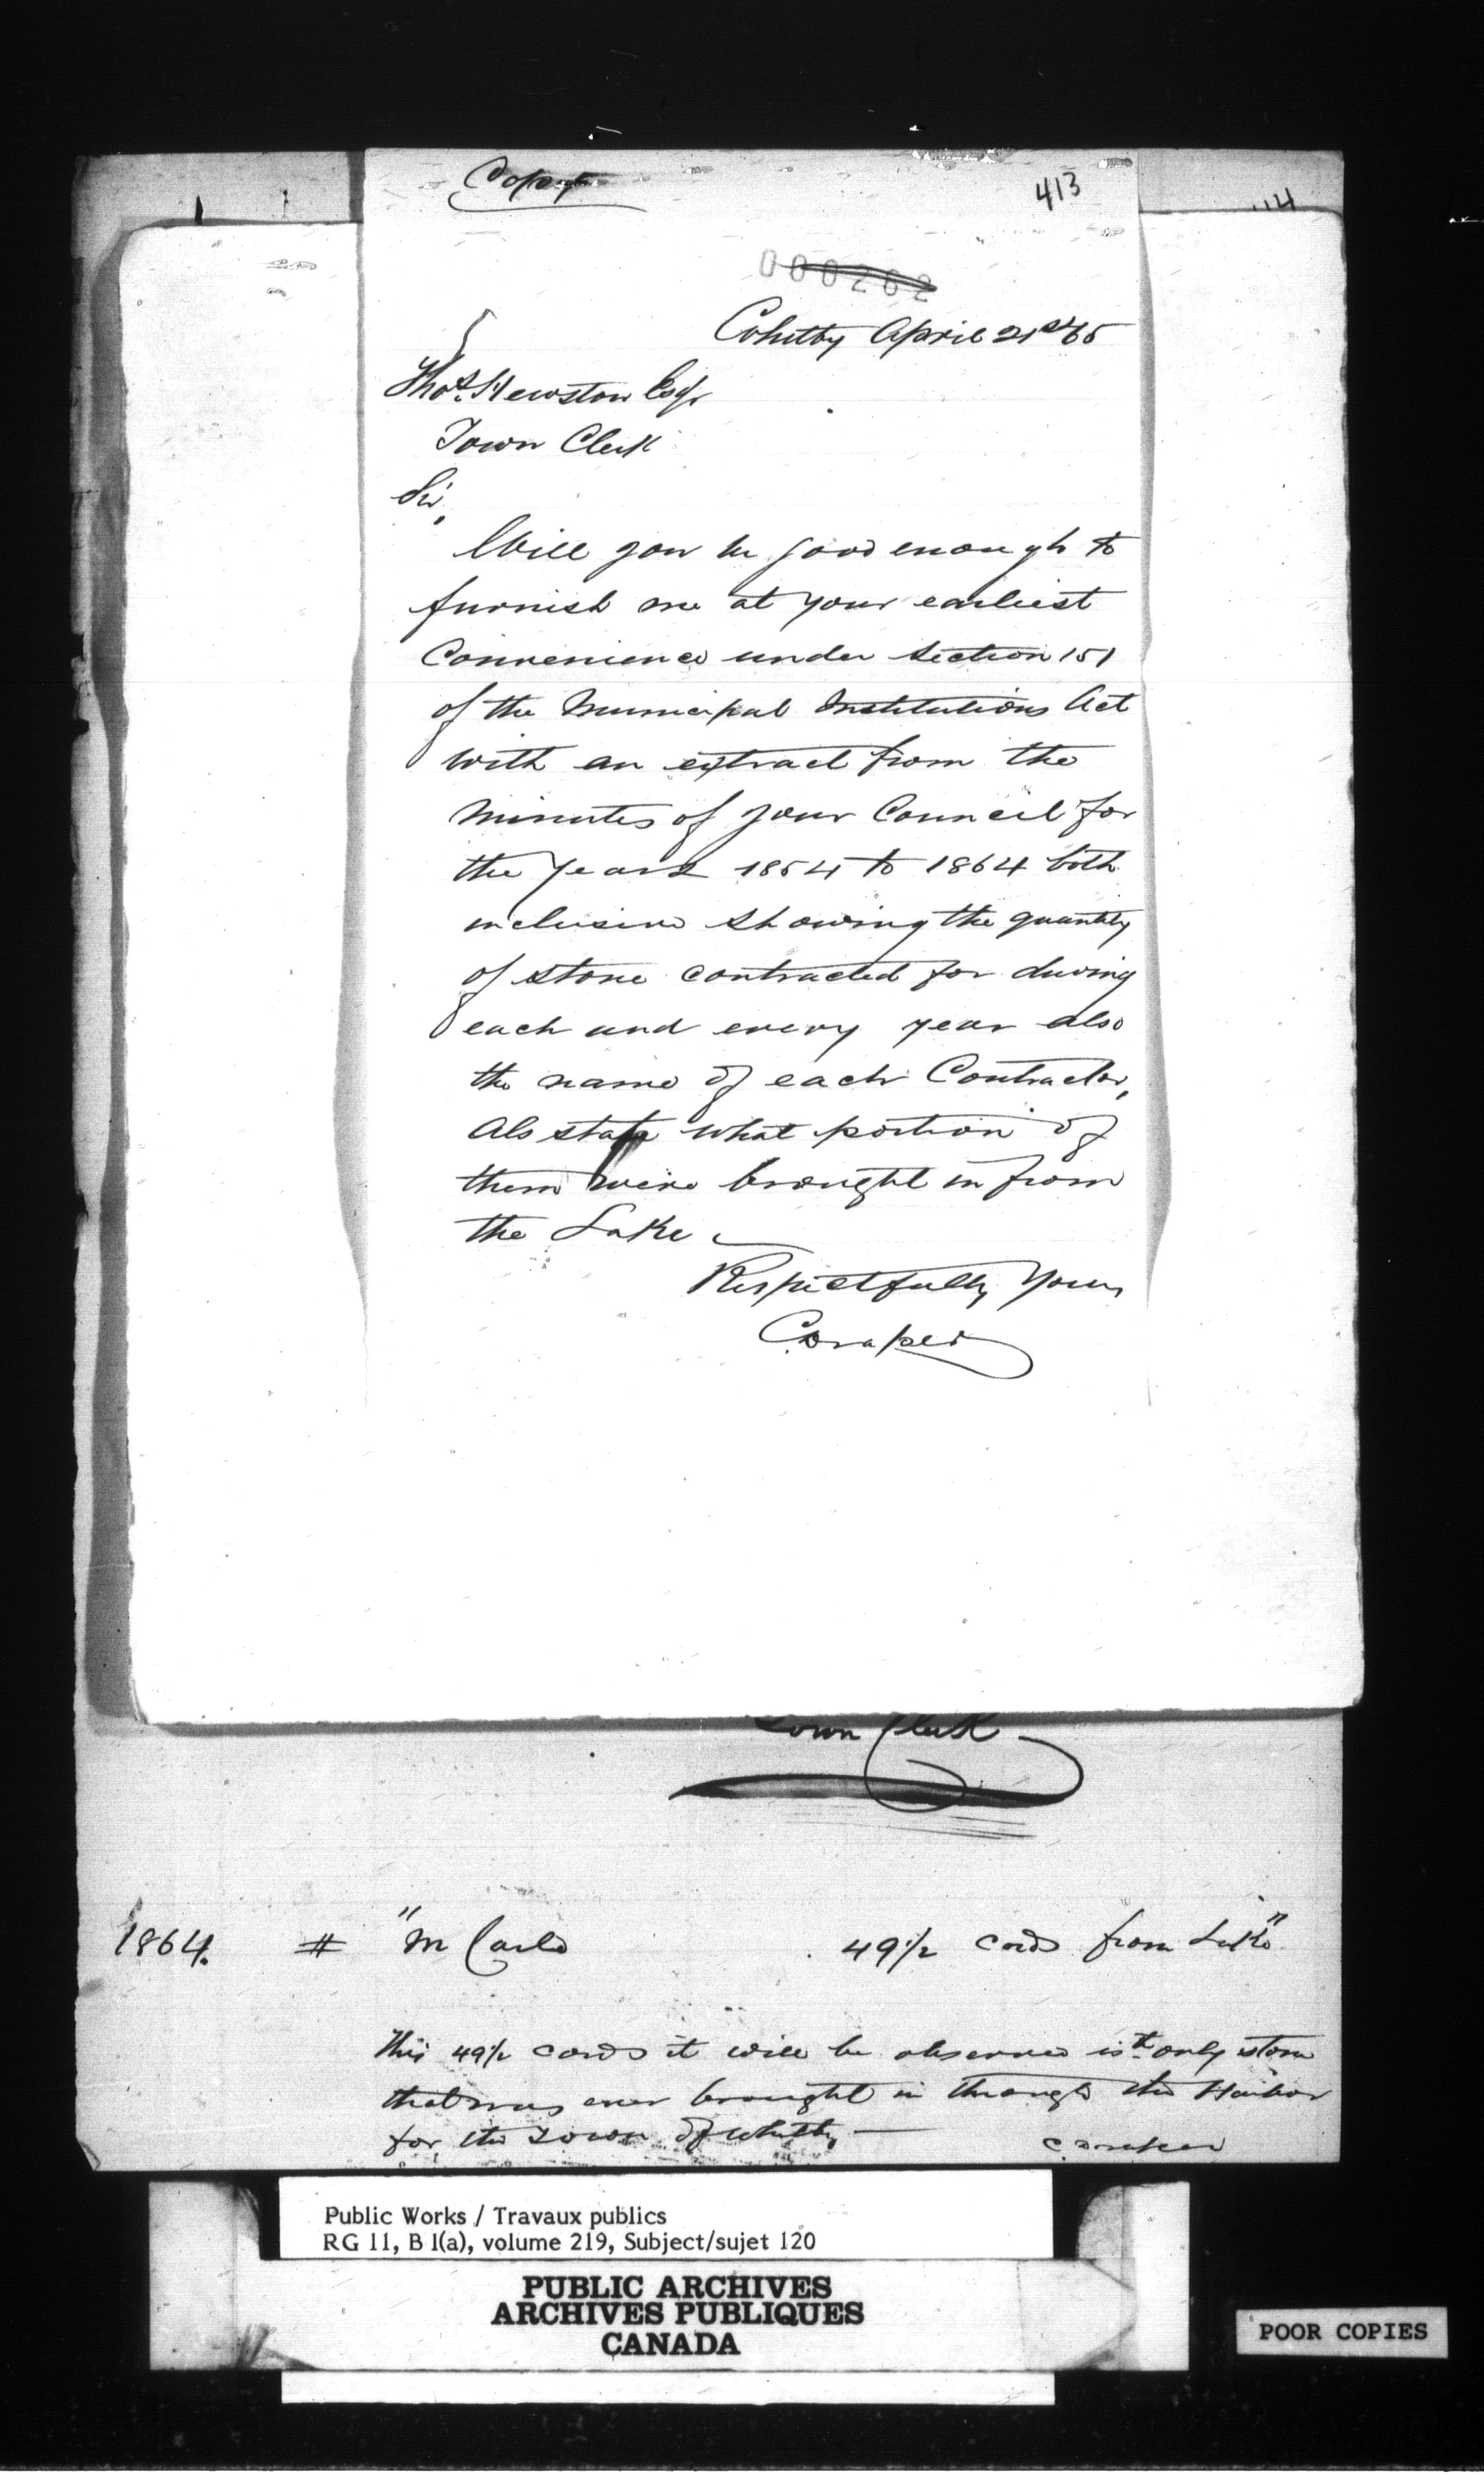 Copy
413
114
000202
Whitby April 21st 65
Thos. Hewston Esqr
Town Clerk
Sir,
Will you be good enough to
furnish me at your earliest
Convenience under Section 151
of the Municipal Institutions Act
with an extract from the
minutes of your Council for
the years 1854 to 1864 both
inclusive showing the quantity
of stone contracted for during
each and every year also
the name of each Contractor,
Also state what portion of
them were brought in from
the Lake
Respectfully Yours
C Draper
Town Clerk
1864. # "M Carlo 49 1/2 cords from Lake"
This 49 1/2 cords it will be observed is the only stone
that was ever brought in through the Harbor
for the Town of Whitby —
C Draper
Public Works / Travaux publics
RG 11, B 1(a), volume 219, Subject/sujet 120
PUBLIC ARCHIVES
ARCHIVES PUBLIQUES
CANADA
POOR COPIES